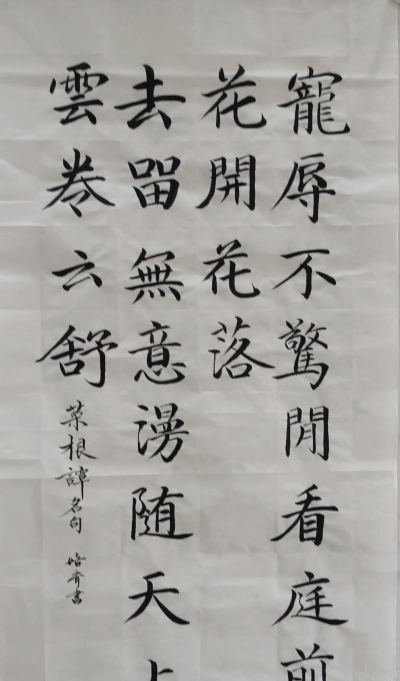 寵辱不驚閒看庭前
花開花落
去留無意漫随天上
雲卷云舒
菜根譚名句 培齐書